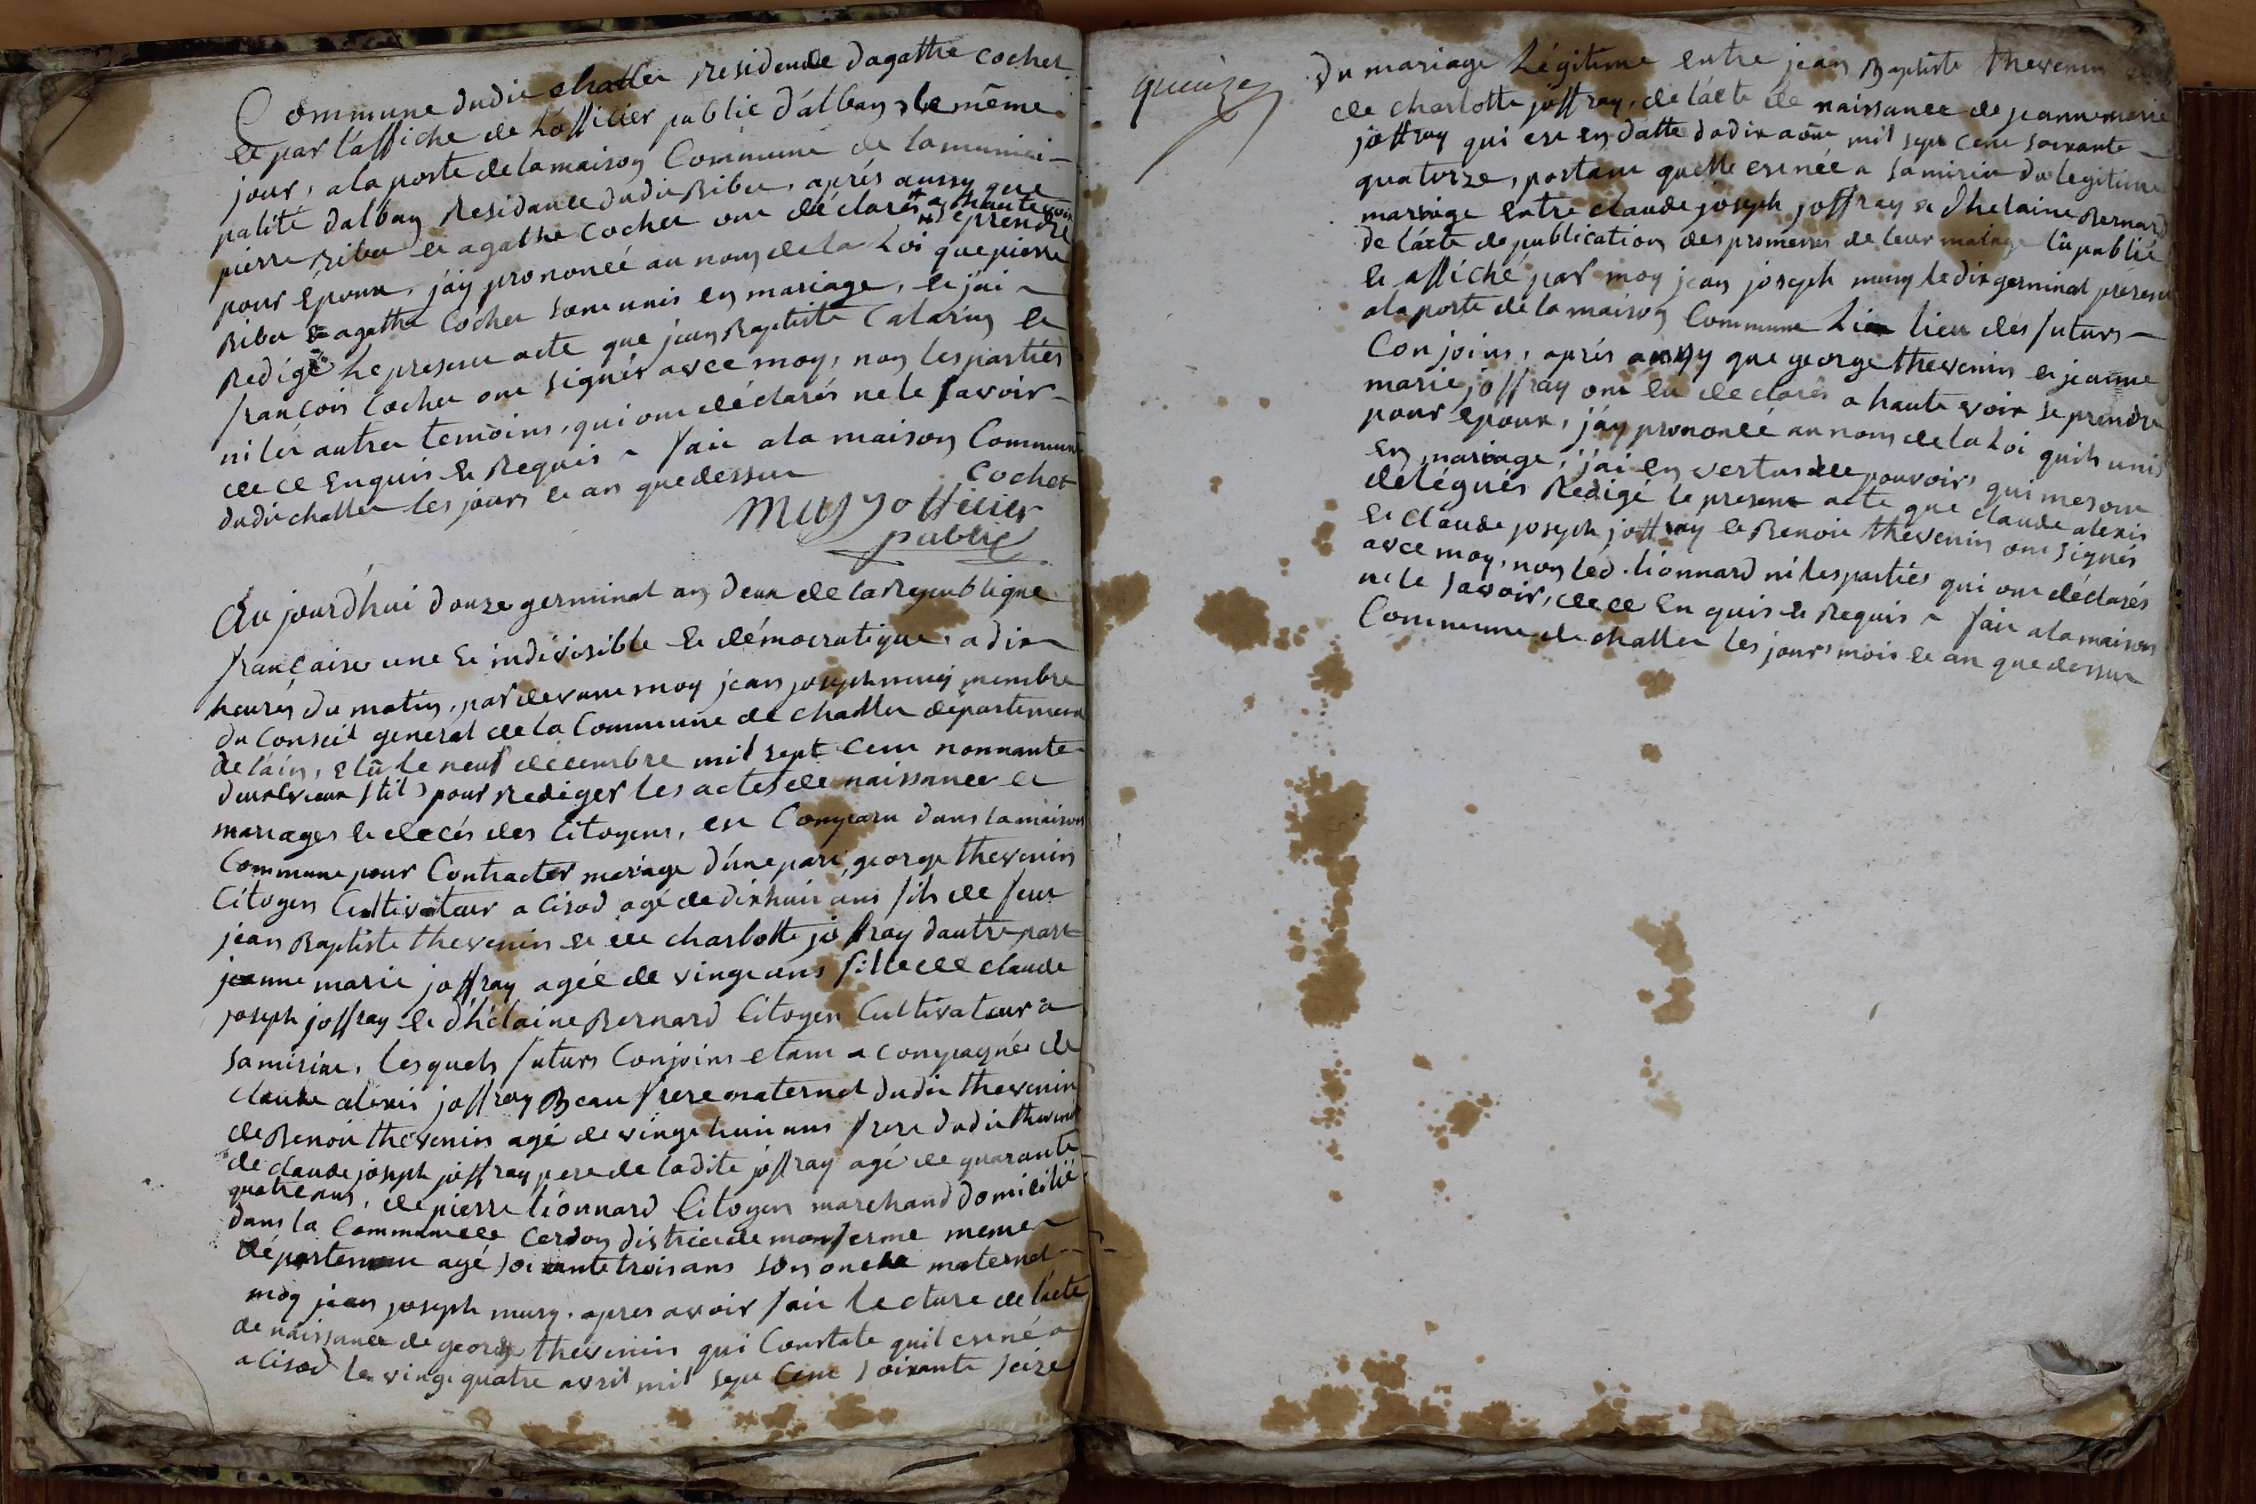 Commune dudit challer residence dagathe cochet
et par l'affiche de L'officier public d'alban, le même
jour, a la porte de la maison Commune de la munici-
palité dalban Residance dudit Ribet, aprés aussy que
pierre ribet et agathe Cochet ont déclarés a haute voix se prendre
pour Epoux, j'ay prononcé au nom de la Loi que pierre
Ribet et agathe Cochet sont unis en mariage, et j'ai
Redigé Le present acte que jean Baptiste Calarin et
françois Cochet ont signés avec moy, non les parties
ni les autres temoins, qui ont déclarés ne le savoir
de ce Enquis et Requis fait a la maison Commune
dudit challer les jours et an que dessus Cochet
Musy officier
public
Au jourd'hui douze germinal an deux de la Republique
française une et indivisible et démocratique, a dix
heures du matin, par devant moy jean joseph musy membre
du Conseil general de la Commune de challer département
de l'ain, Elû le neuf décembre mil sept Cent nonnante
deux (vieux stil) pour Rediger les actes de naissance et
mariages et decés des Citoyens, est Comparu dans la maison
Commune pour Contracter mariage d'une part, george thevenin
Citoyen Cultivateur a Cisod agé de dix huit ans fils de feux
jean Baptiste thevenin et de charlotte joffray dautre part
jeanne marie joffray agée de vingt ans fille de Claude
joseph joffray et d'hélaine Bernard Citoyen Cultivateur a
samiriat, Lesquels futurs Conjoins etant acompagnés de
claude alexis joffray Beau frere maternel dudit thevenin
de Benoit thevenin agé de vingt huit ans frere dudit thevenin
de claude joseph joffray pere de ladite joffray agé de quarante
quatre ans, de pierre lionnard Citoyen marchand domicilié
dans la Commune de Cerdon district de montferme meme
département agé soixante trois ans son oncle maternel
moy jean joseph musy. apres avoir fait Lecture de l'acte
de naissance de george thevenin qui Constate quil est né a
a Cisod le vingt quatre avril mil sept Cent soixante seize
quinze
du mariage Légitime entre jean Baptiste thevenin et
de charlotte joffray, de l'acte de naissance de jeanne marie
joffray qui est en datte du dix août mil sept Cent soixante
quatorze, portant quelle est née a samiriat du legitime
mariage entre claude joseph joffray et dhelaine Bernard
de l'acte de publication des promesses de leur mariage lû publié
et affiché par moy jean joseph musy le dix germinal présent
a la porte de la maison Commune lieu des futurs
Conjoins, aprés aussy que george thevenin et jeanne
marie joffray ont eu declarés a haute voix se prendre
pour epoux, j'ay prononcé au nom de la Loi quils unis
en mariage, j'ai en vertus des pouvoirs qui me sont
délégués Redigé le present acte que claude alexis
et Claude joseph joffray et Benoit thevenin ont signés
avec moy, non led. lionnard ni les parties qui ont déclarés
ne le savoir, de ce Enquis et Requis fait a la maison
Commune de challer les jours mois et an que dessus